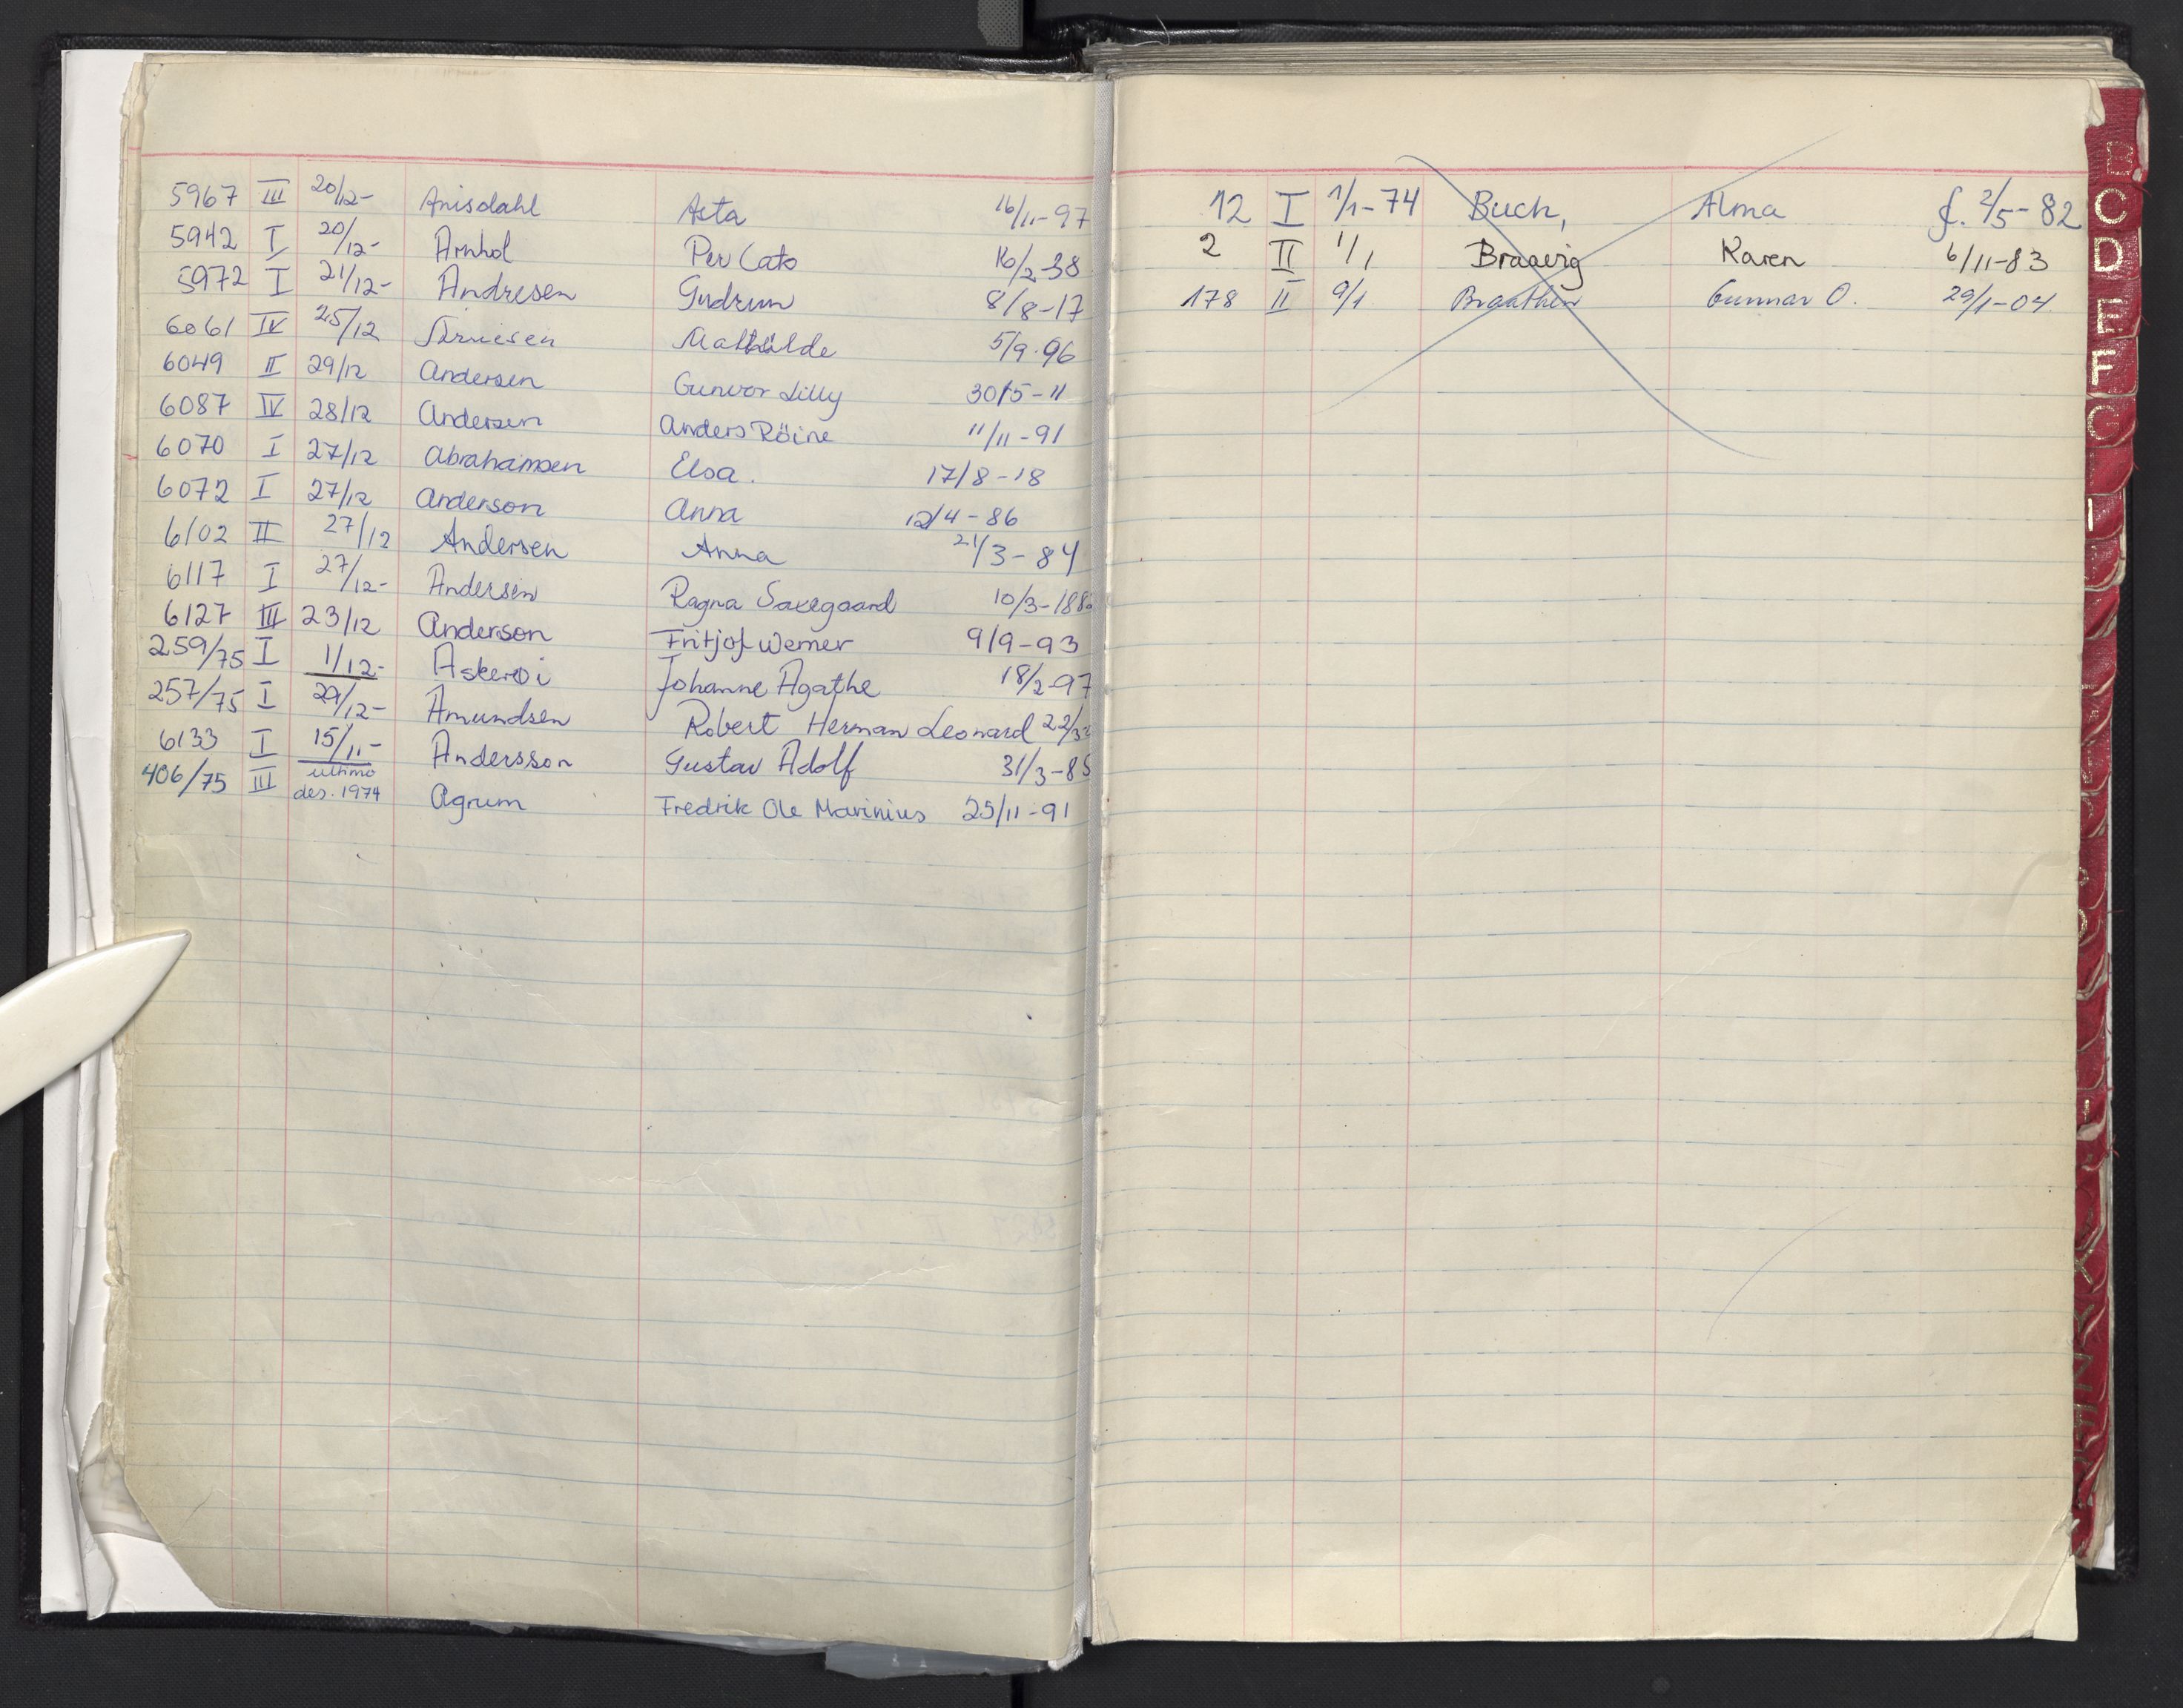 5967 III 20/12- Anisdahl Asta 16/11-97
5942 I 20/12- Arnhol Per Cato 16/2-38
5972 I 21/12- Andresen Gudrun 8/8-17
6061 IV 25/12 5/9-96
6049 II 29/12 Andersen Gunvor Lilly 30/5-11
6087 IV 28/12 Andersen Anders Röine 11/11-91
6070 I 27/12 Abrahamsen Elsa. 17/8-18
6072 I 27/12 Anderson Anna 12/4-86
6102 II 27/12 Andersen Anna 21/3-84
6117 I 27/12- Andersen Ragna Saxegaard 10/3-188
6127 III 23/12 Anderson Fritjof Werner 9/9-93
259/75 I 1/12- Askerøi Johanne Agathe 18/2-97
257/75 I 29/12- Amundsen Robert Herman Leonard 22/3
6133 I 15/11- Andersson Gustav Adolf 31/3-85
406/75 III ultimo des. 1974 Agrum Fredrik Ole Marinius 25/11-91
12 I 1/1-74 Buch, Alma f. 2/5-82
2 II 1/1 Braavig Karen 6/11-83
178 II 9/1 Braathen Gunnar O. 29/1-04
B
C
D
E
F
G
I